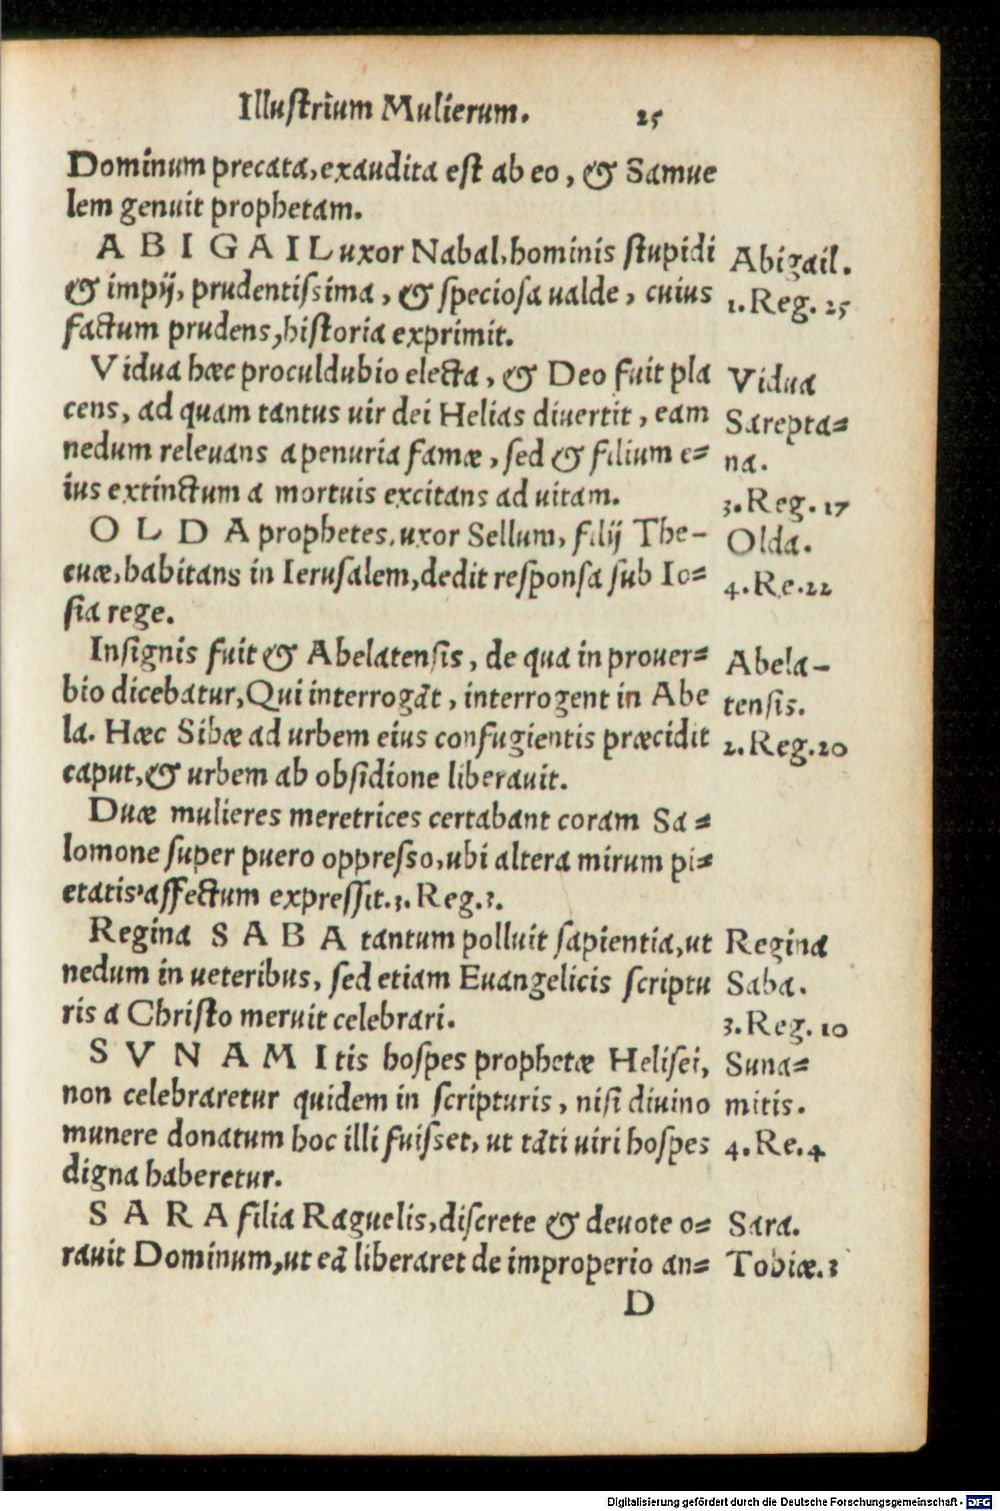 Illuſtrium Mulierum. 25
Dominum precata, exaudita eſt ab eo, & Samue
lem genuit prophetam.
ABIGAIL uxor Nabal, hominis ſtupidi
& impij, prudentiſsima, & ſpecioſa ualde, cuius
factum prudens, hiſtoria exprimit.
Abigail.
1. Reg. 25
Vidua hæc proculdubio electa, & Deo fuit pla
cens, ad quam tantus uir dei Helias diuertit, eam
nedum releuans a penuria famæ, ſed & filium e=
ius extinctum a mortuis excitans ad uitam.
Vidua
Sarepta=
na.
3. Reg. 17
OLDA prophetes, uxor Sellum, filij The-
cuæ, habitans in Ieruſalem, dedit reſponſa ſub Io=
ſia rege.
Olda.
4. Re. 22
Inſignis fuit & Abelatenſis, de qua in prouer=
bio dicebatur, Qui interrogāt, interrogent in Abe
la. Hæc Sibæ ad urbem eius confugientis præcidit
caput, & urbem ab obſidione liberauit.
Abela-
tenſis.
2. Reg. 20
Duæ mulieres meretrices certabant coram Sa=
lomone ſuper puero oppreſſo, ubi altera mirum pi=
etatis affectum expreſſit. 3. Reg. 3.
Regina SABA tantum polluit ſapientia, ut
nedum in ueteribus, ſed etiam Euangelicis ſcriptu
ris a Chriſto meruit celebrari.
Regina
Saba.
3. Reg. 10
SVNAMItis hoſpes prophetæ Heliſei,
non celebraretur quidem in ſcripturis, niſi diuino
munere donatum hoc illi fuiſset, ut tāti uiri hoſpes
digna haberetur.
Suna=
mitis.
4. Re. 4
SARA filia Raguelis, diſcrete & deuote o=
rauit Dominum, ut eā liberaret de improperio an=
Sara.
Tobiæ. 3
D
Digitalisierung gefördert durch die Deutsche Forschungsgemeinschaft - DFG